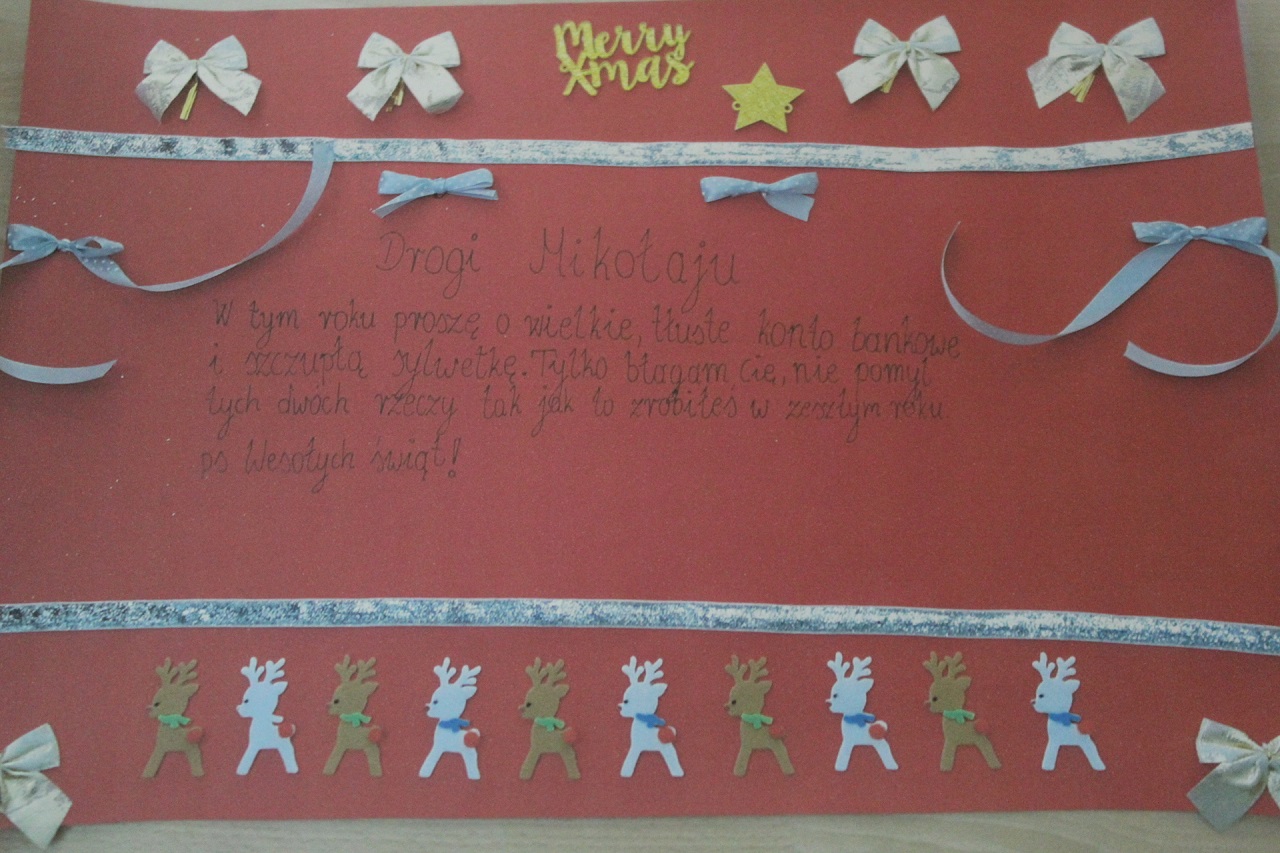 Merry
Xmas
Drogi Mikołaju
W tym roku proszę o wielkie, tłuste konto bankowe
i szczupłą sylwetkę. Tylko błagam Cię, nie pomyl
tych dwóch rzeczy tak jak to zrobiłeś w zeszłym roku.
ps Wesołych świąt!